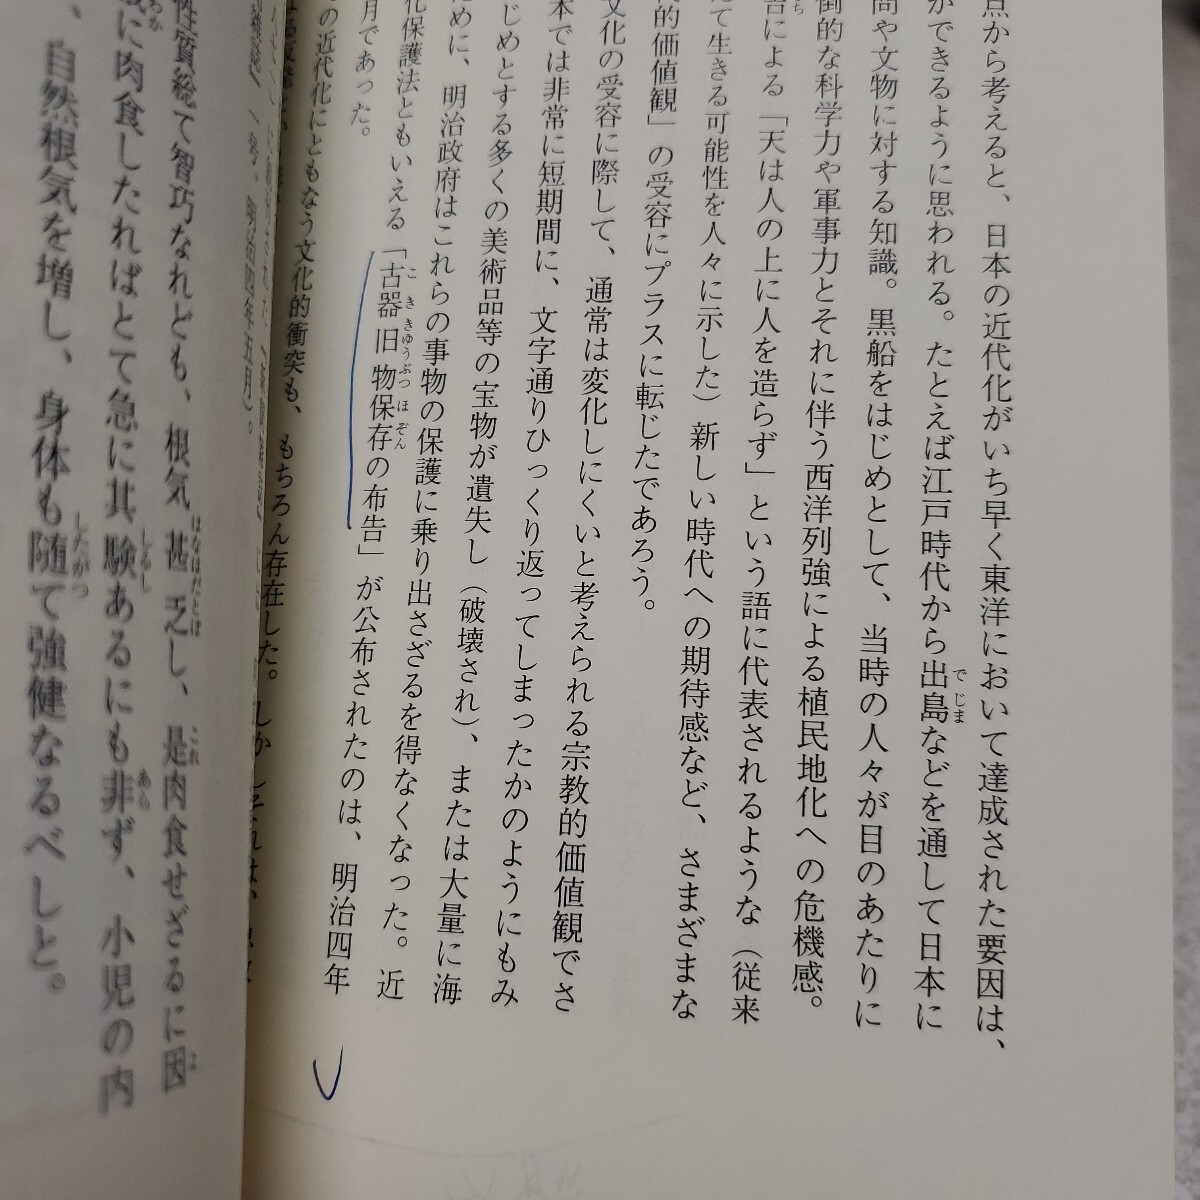 点から考えると、日本の近代化がいち早く東洋において達成された要因は、
ができるように思われる。たとえば江戸時代から出島などを通して日本に
問や文物に対する知識。黒船をはじめとして、当時の人々が目のあたりに
倒的な科学力や軍事力とそれに伴う西洋列強による植民地化への危機感。
による「天は人の上に人を造らず」という語に代表されるような（従来
て生きる可能性を人々に示した）新しい時代への期待感など、さまざまな
的価値観」の受容にプラスに転じたであろう。
文化の受容に際して、通常は変化しにくいと考えられる宗教的価値観でさ
本では非常に短期間に、文字通りひっくり返ってしまったかのようにもみ
じめとする多くの美術品等の宝物が遺失し（破壊され）、または大量に海
ために、明治政府はこれらの事物の保護に乗り出さざるを得なくなった。近
化保護法ともいえる「古器旧物保存の布告」が公布されたのは、明治四年
月であった。
の近代化にともなう文化的衝突も、もちろん存在した。しかしそれは、
性質総て智巧なれども、根気甚乏し、是肉食せざるに因
に肉食したればとて急に其験あるにも非ず、小児の内
、自然根気を増し、身体も随て強健なるべしと。